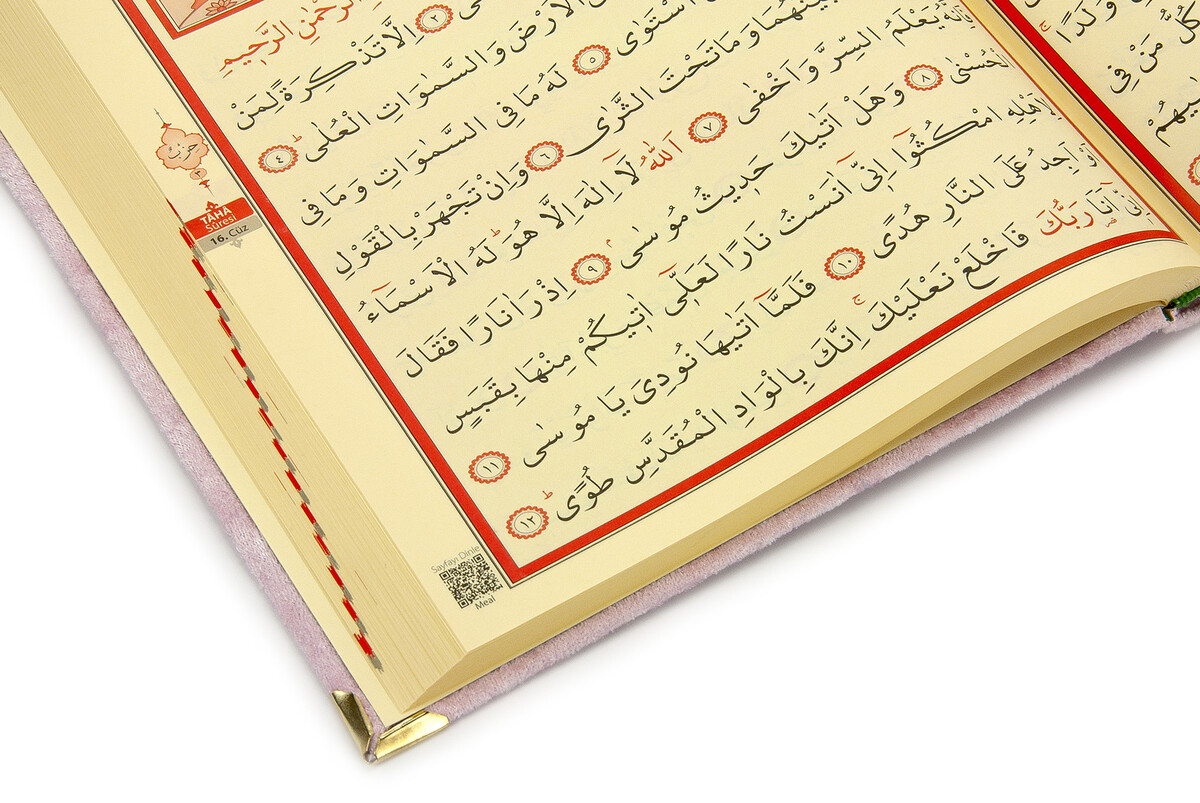 وَلَدًاۜ
كُلُّ مَنْ فِي
الرَّحْمٰنِ الرَّح۪يمِ
٢ اِلَّا تَذْكِرَةً لِمَنْ
الْاَرْضَ وَالسَّمٰوَاتِ الْعُلٰىۜ ٤
اسْتَوٰى ٥ لَهُ مَا فِي السَّمٰوَاتِ وَمَا فِي
بَيْنَهُمَا وَمَا تَحْتَ الثَّرٰى ٦ وَاِنْ تَجْهَرْ بِالْقَوْلِ
فَاِنَّهُ يَعْلَمُ السِّرَّ وَاَخْفٰى ٧ اَللّٰهُ لَٓا اِلٰهَ اِلَّا هُوَۜ لَهُ الْاَسْمَٓاءُ
الْحُسْنٰى ٨ وَهَلْ اَتٰيكَ حَد۪يثُ مُوسٰىۢ ٩ اِذْ رَاٰ نَارًا فَقَالَ
لِاَهْلِهِ امْكُثُٓوا اِنّ۪ٓي اٰنَسْتُ نَارًا لَعَلّ۪ٓي اٰت۪يكُمْ مِنْهَا بِقَبَسٍ
اَوْ اَجِدُ عَلَى النَّارِ هُدًى ١٠ فَلَمَّٓا اَتٰيهَا نُودِيَ يَا مُوسٰى ١١
اِنّ۪ٓي اَنَا۬ رَبُّكَ فَاخْلَعْ نَعْلَيْكَۚ اِنَّكَ بِالْوَادِ الْمُقَدَّسِ طُوًىۜ ١٢
حزب
TÂHÂ
Sûresi
16. Cüz
Sayfayı Dinle
Meal